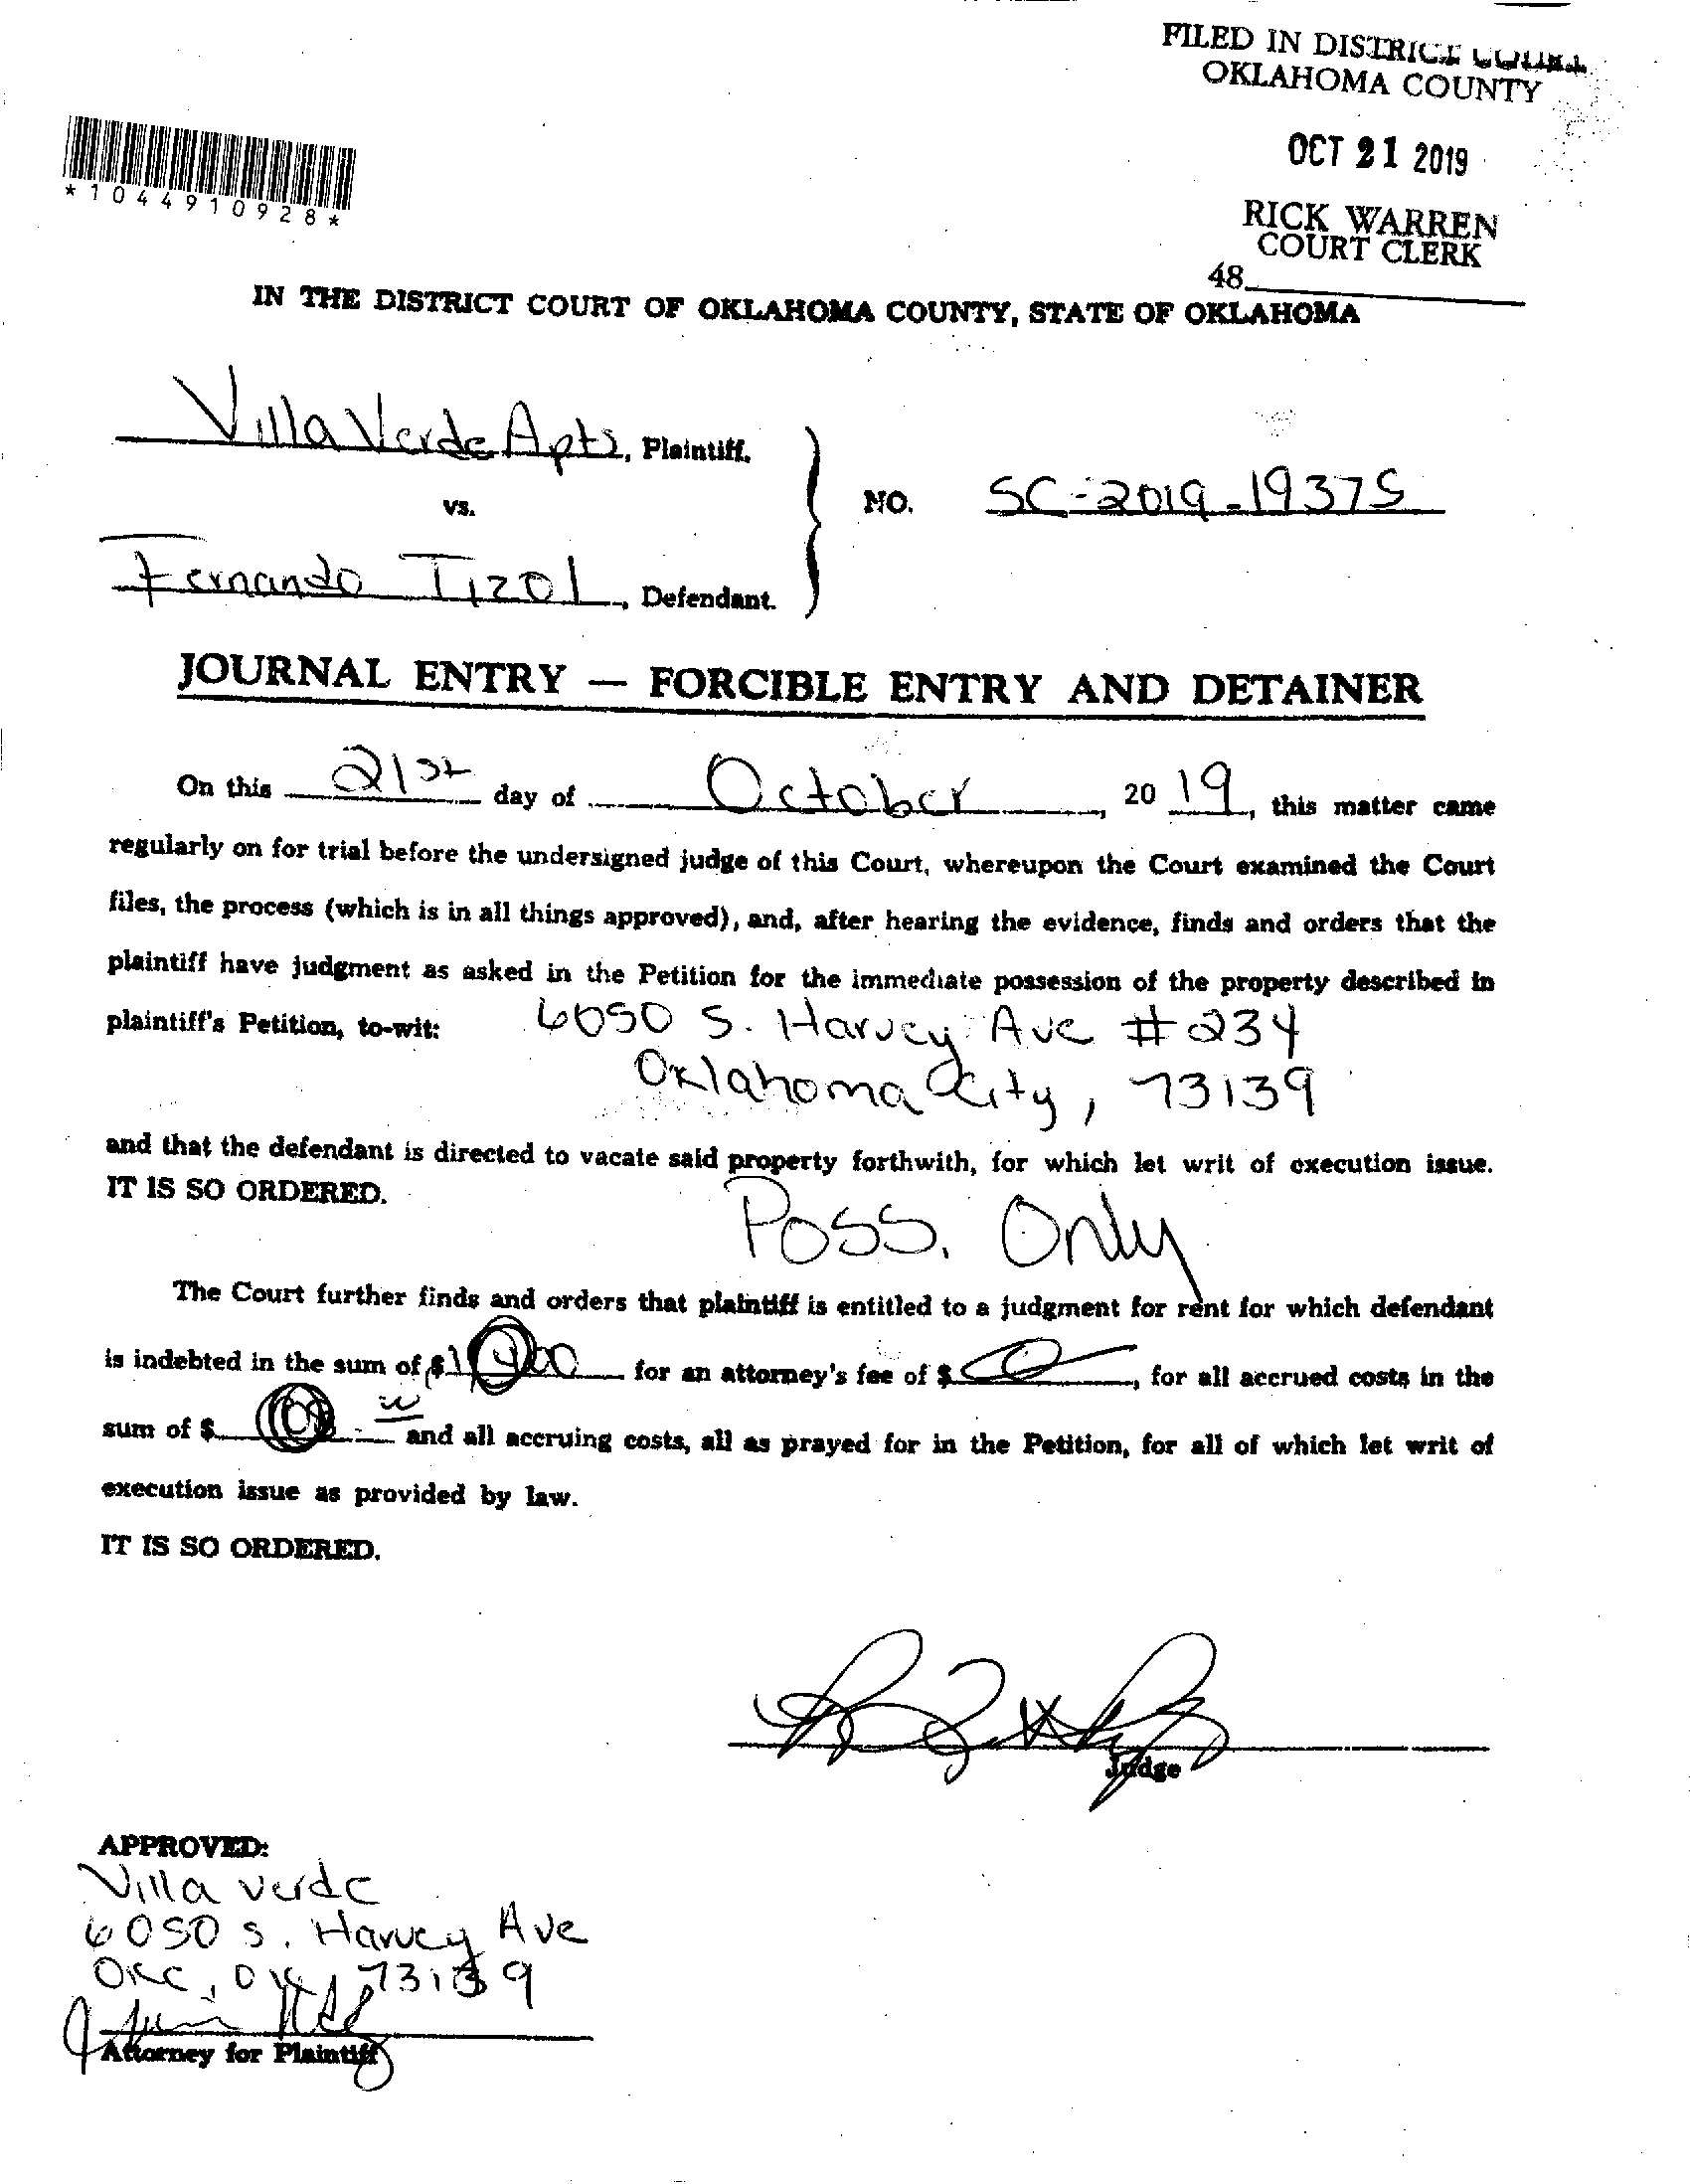 FILED IN DISTRICT COURT
OKLAHOMA COUNTY
OCT 21 2019
RICK WARREN
COURT CLERK
48
*1044910928*
IN THE DISTRICT COURT OF OKLAHOMA COUNTY, STATE OF OKLAHOMA
Villa Verde Apts, Plaintiff.
vs.
NO. SC-2019-19375
Fernando Tizol, Defendant.
JOURNAL ENTRY — FORCIBLE ENTRY AND DETAINER
On this 21st day of October, 2019, this matter came
regularly on for trial before the undersigned judge of this Court, whereupon the Court examined the Court
files, the process (which is in all things approved), and, after hearing the evidence, finds and orders that the
plaintiff have judgment as asked in the Petition for the immediate possession of the property described in
plaintiff's Petition, to-wit: 6050 S. Harvey Ave #234
Oklahoma City, 73139
and that the defendant is directed to vacate said property forthwith, for which let writ of execution issue.
IT IS SO ORDERED.
Poss. Only
The Court further finds and orders that plaintiff is entitled to a judgment for rent for which defendant
is indebted in the sum of $ for an attorney's fee of $, for all accrued costs in the
sum of $ and all accruing costs, all as prayed for in the Petition, for all of which let writ of
execution issue as provided by law.
IT IS SO ORDERED.
Judge
APPROVED:
Villa Verde
6050 S. Harvey Ave
OKC, OK, 73139
Attorney for Plaintiff